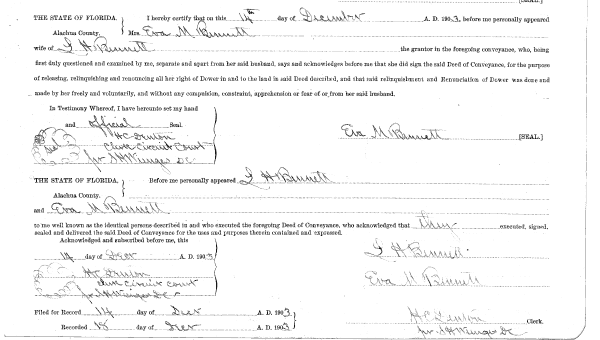 [SEAL]
THE STATE OF FLORIDA. I hereby certify that on this 14th day of December A. D. 1903, before me personally appeared
Alachua County. Mrs Eva M Bennett
wife of I H Bennett the grantor in the foregoing conveyance, who, being
first duly questioned and examined by me, separate and apart from her said husband, says and acknowledges before me that she did sign the said Deed of Conveyance, for the purpose
of releasing, relinquishing and renouncing all her right of Dower in and to the land in said Deed described, and that said relinquishment and Renunciation of Dower was done and
made by her freely and voluntarily, and without any compulsion, constraint, apprehension or fear of or from her said husband.
In Testimony Whereof, I have hereunto set my hand
and official Seal.
Eva M Bennett [SEAL.]
Seal H C Denton
Clerk Circuit Court
pr S H Wienges DC
THE STATE OF FLORIDA. Before me personally appeared I H Bennett
Alachua County.
and Eva M Bennett
to me well known as the identical persons described in and who executed the foregoing Deed of Conveyance, who acknowledged that they executed, signed,
sealed and delivered the said Deed of Conveyance for the uses and purposes therein contained and expressed.
Acknowledged and subscribed before me, this
14 day of Decr A. D. 1903
I H Bennett
H C Denton
Clerk Circuit Court
pr S H Wienges DC
Eva M Bennett
Filed for Record 14 day of Decr A. D. 1903
Recorded 18 day of Decr A. D. 1903
H C Denton Clerk.
pr S H Wienges DC